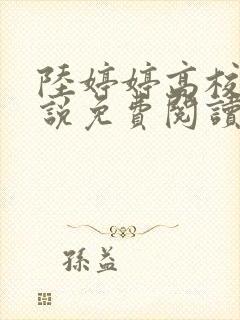 陸婷婷高校
說免費閱讀
孫益